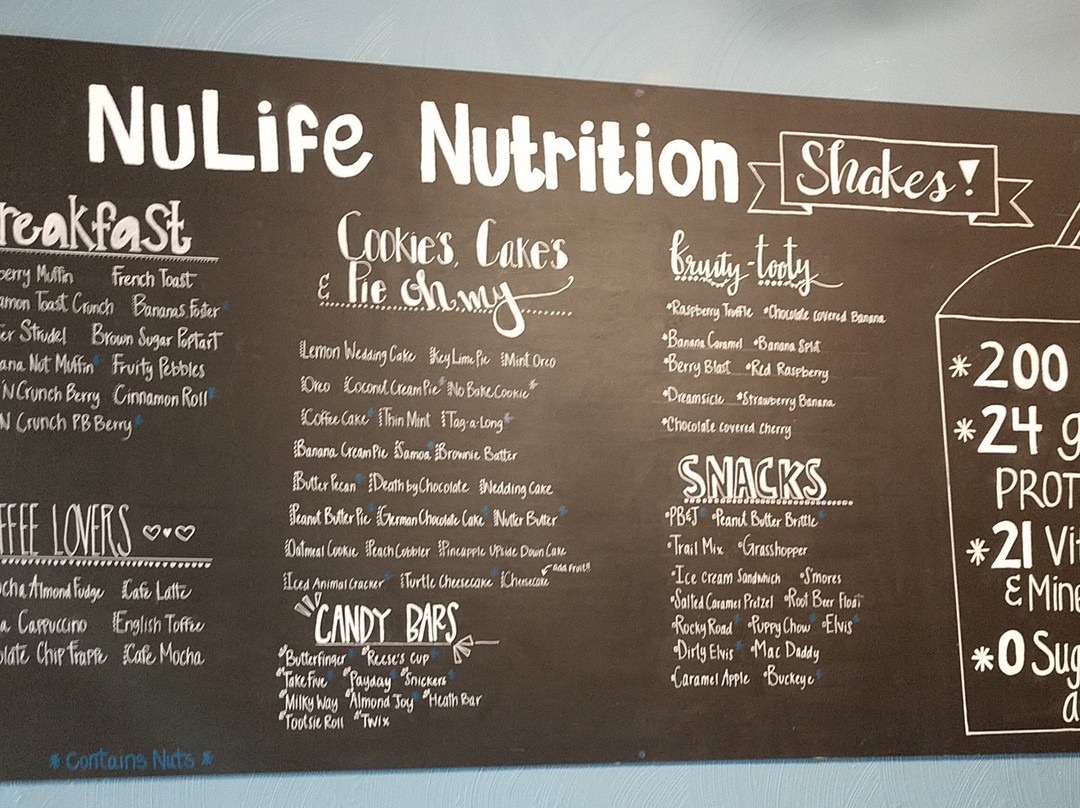 NuLife Nutrition Shakes!
reakfast
berry Muffin French Toast
amon Toast Crunch Bananas Foster*
er Strudel Brown Sugar PopTart
ana Nut Muffin* Fruity Pebbles
'N Crunch Berry Cinnamon Roll*
N Crunch PB Berry*
FFEE LOVERS
cha Almond Fudge Cafe Latte
a Cappuccino English Toffee
olate Chip Frappe Cafe Mocha
* Contains Nuts *
Cookie's, Cake's
& Pie oh my
Lemon Wedding Cake Key Lime Pie Mint Oreo
Oreo Coconut Cream Pie* No Bake Cookie*
Coffee Cake* Thin Mint Tag-a-Long*
Banana Cream Pie Samoa* Brownie Batter
Butter Pecan* Death by Chocolate Wedding Cake
Peanut Butter Pie* German Chocolate Cake* Nutter Butter*
Oatmeal Cookie Peach Cobbler Pineapple Upside Down Cake
Iced Animal Cracker* Turtle Cheesecake* Cheesecake add fruit!!
CANDY BARS
"Butterfinger* "Reese's Cup*
"Take Five* "Payday* "Snickers*
"Milky Way "Almond Joy* "Heath Bar
"Tootsie Roll "Twix
fruity-tooty
•Raspberry Truffle •Chocolate covered Banana
•Banana Caramel •Banana Split
•Berry Blast •Red Raspberry
•Dreamsicle •Strawberry Banana
•Chocolate covered Cherry
SNACKS
•PB&J* •Peanut Butter Brittle*
•Trail Mix •Grasshopper
•Ice Cream Sandwhich •S'mores
•Salted Caramel Pretzel •Root Beer Float
•Rocky Road* •Puppy Chow* •Elvis*
•Dirty Elvis* •Mac Daddy
•Caramel Apple •Buckeye*
*200
*24 g
PROT
*21 Vit
& Mine
*0 Sug